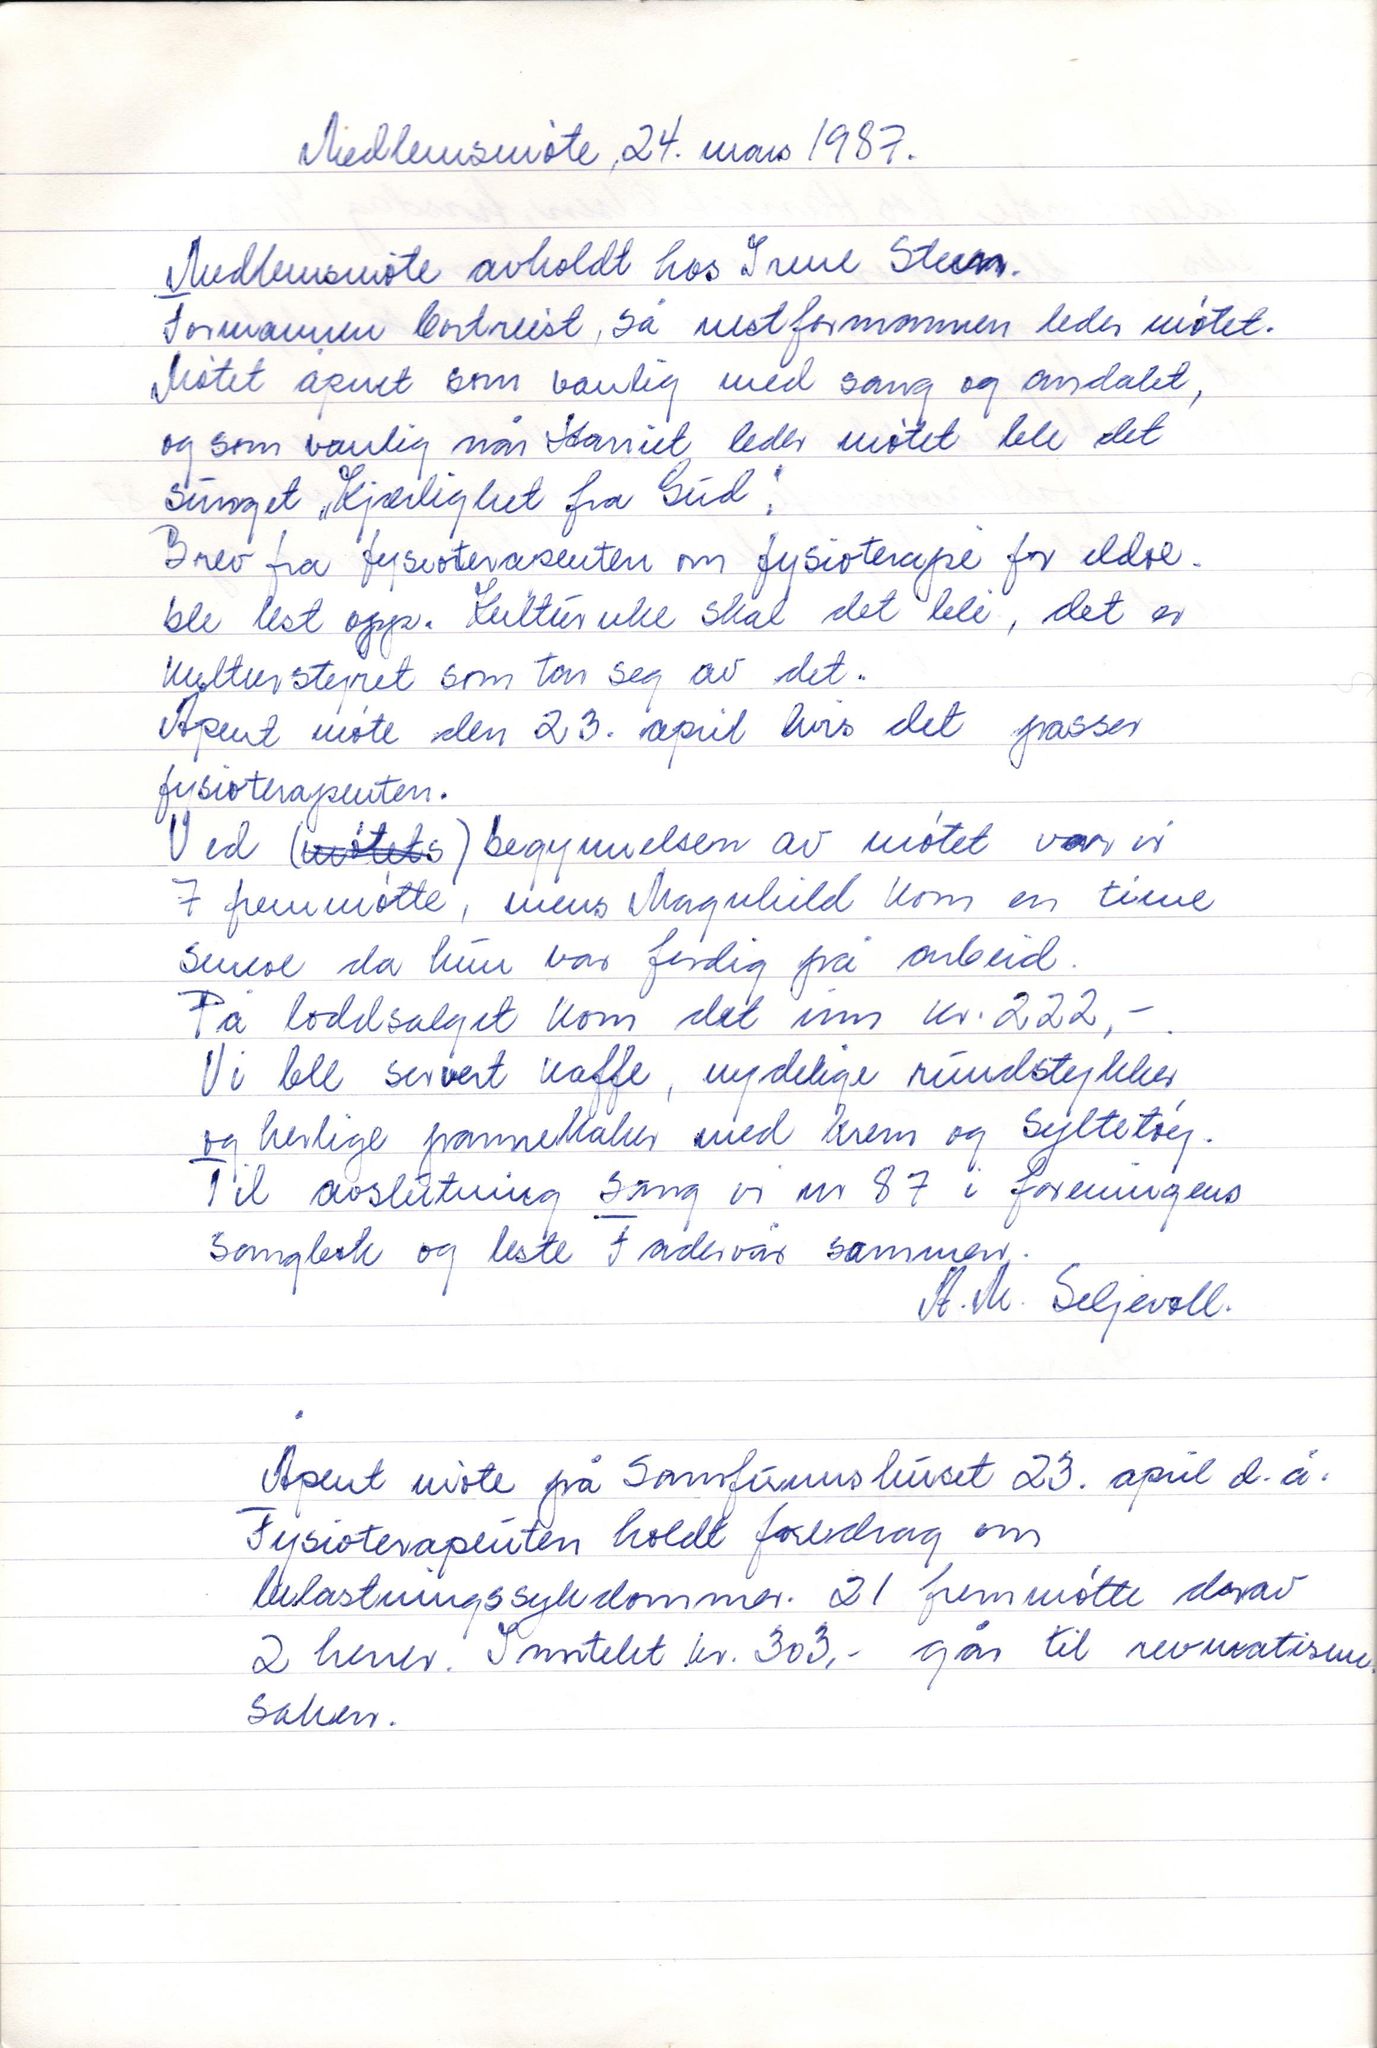 Medlemsmøte, 24. mars 1987.
Medlemsmøte avholdt hos Irene Steen.
Formannen bortreist, så nestformannen leder møtet.
Møtet åpnet som vanlig med sang og andakt,
og som vanlig når Harriet leder møtet ble det
sunget „Kjærlighet fra Gud".
Brev fra fysioterapeuten om fysioterapi for eldre.
ble lest opp. Kulturuke skal det bli, det er
kulturstyret som tar seg av det.
Åpent møte den 23. april hvis det passer
fysioterapeuten.
Ved (møtets) begynnelsen av møtet var vi
7 fremmøtte, mens Magnhild kom en time
senere da hun var ferdig på arbeid.
På loddsalget kom det inn kr. 222,-.
Vi ble servert kaffe, nydelige rundstykker
og herlige pannekaker med krem og syltetøy.
Til avslutning sang vi nr 87 i foreningens
sangbok og leste Fadervår sammen.
A. M. Seljevoll.
Åpent møte på Samfunnshuset 23. april d. å.
Fysioterapeuten holdt foredrag om
belastningssykdommer. 21 fremmøtte derav
2 herrer. Inntekt kr. 303,- går til revmatisme-
saken.